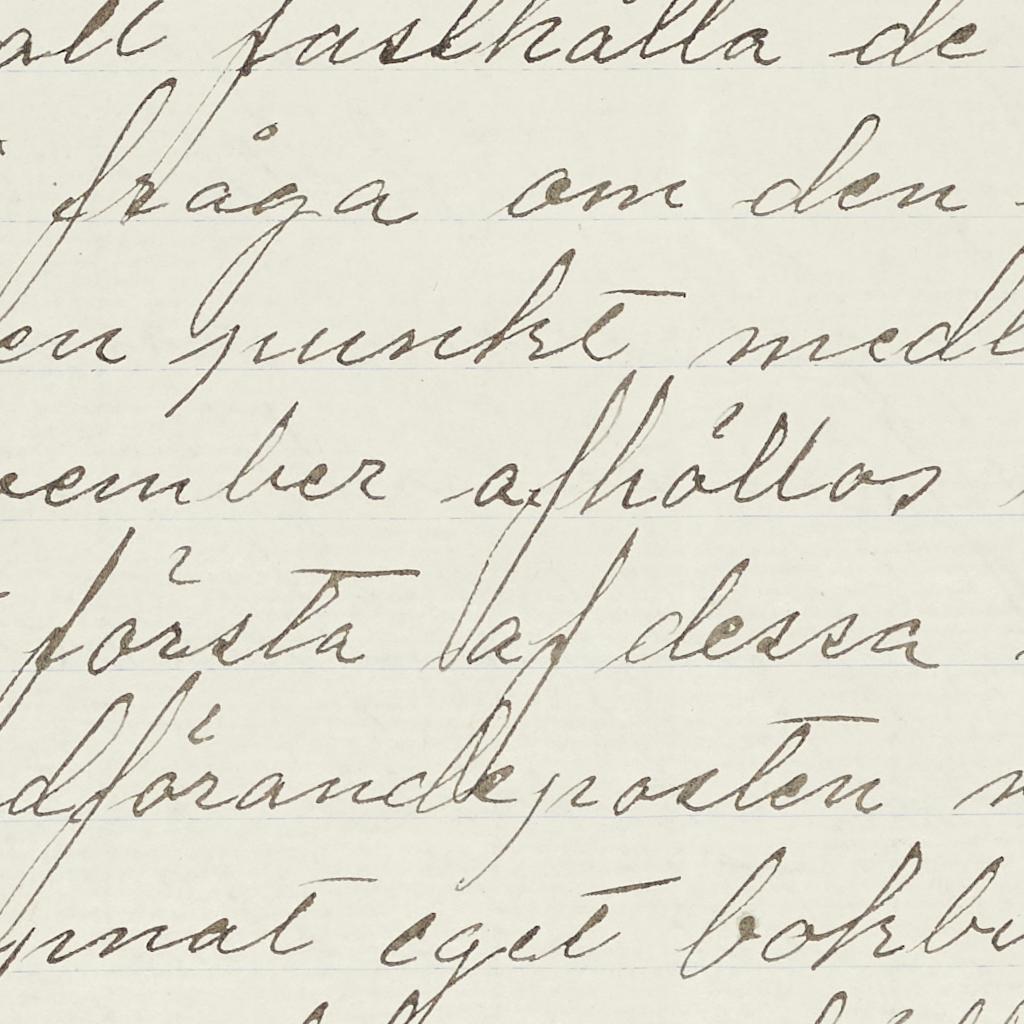 att fasthålla de
fråga om den
en punkt medl
vember afhöllos
första af dessa
dförandeposten
pnat eget bokbi